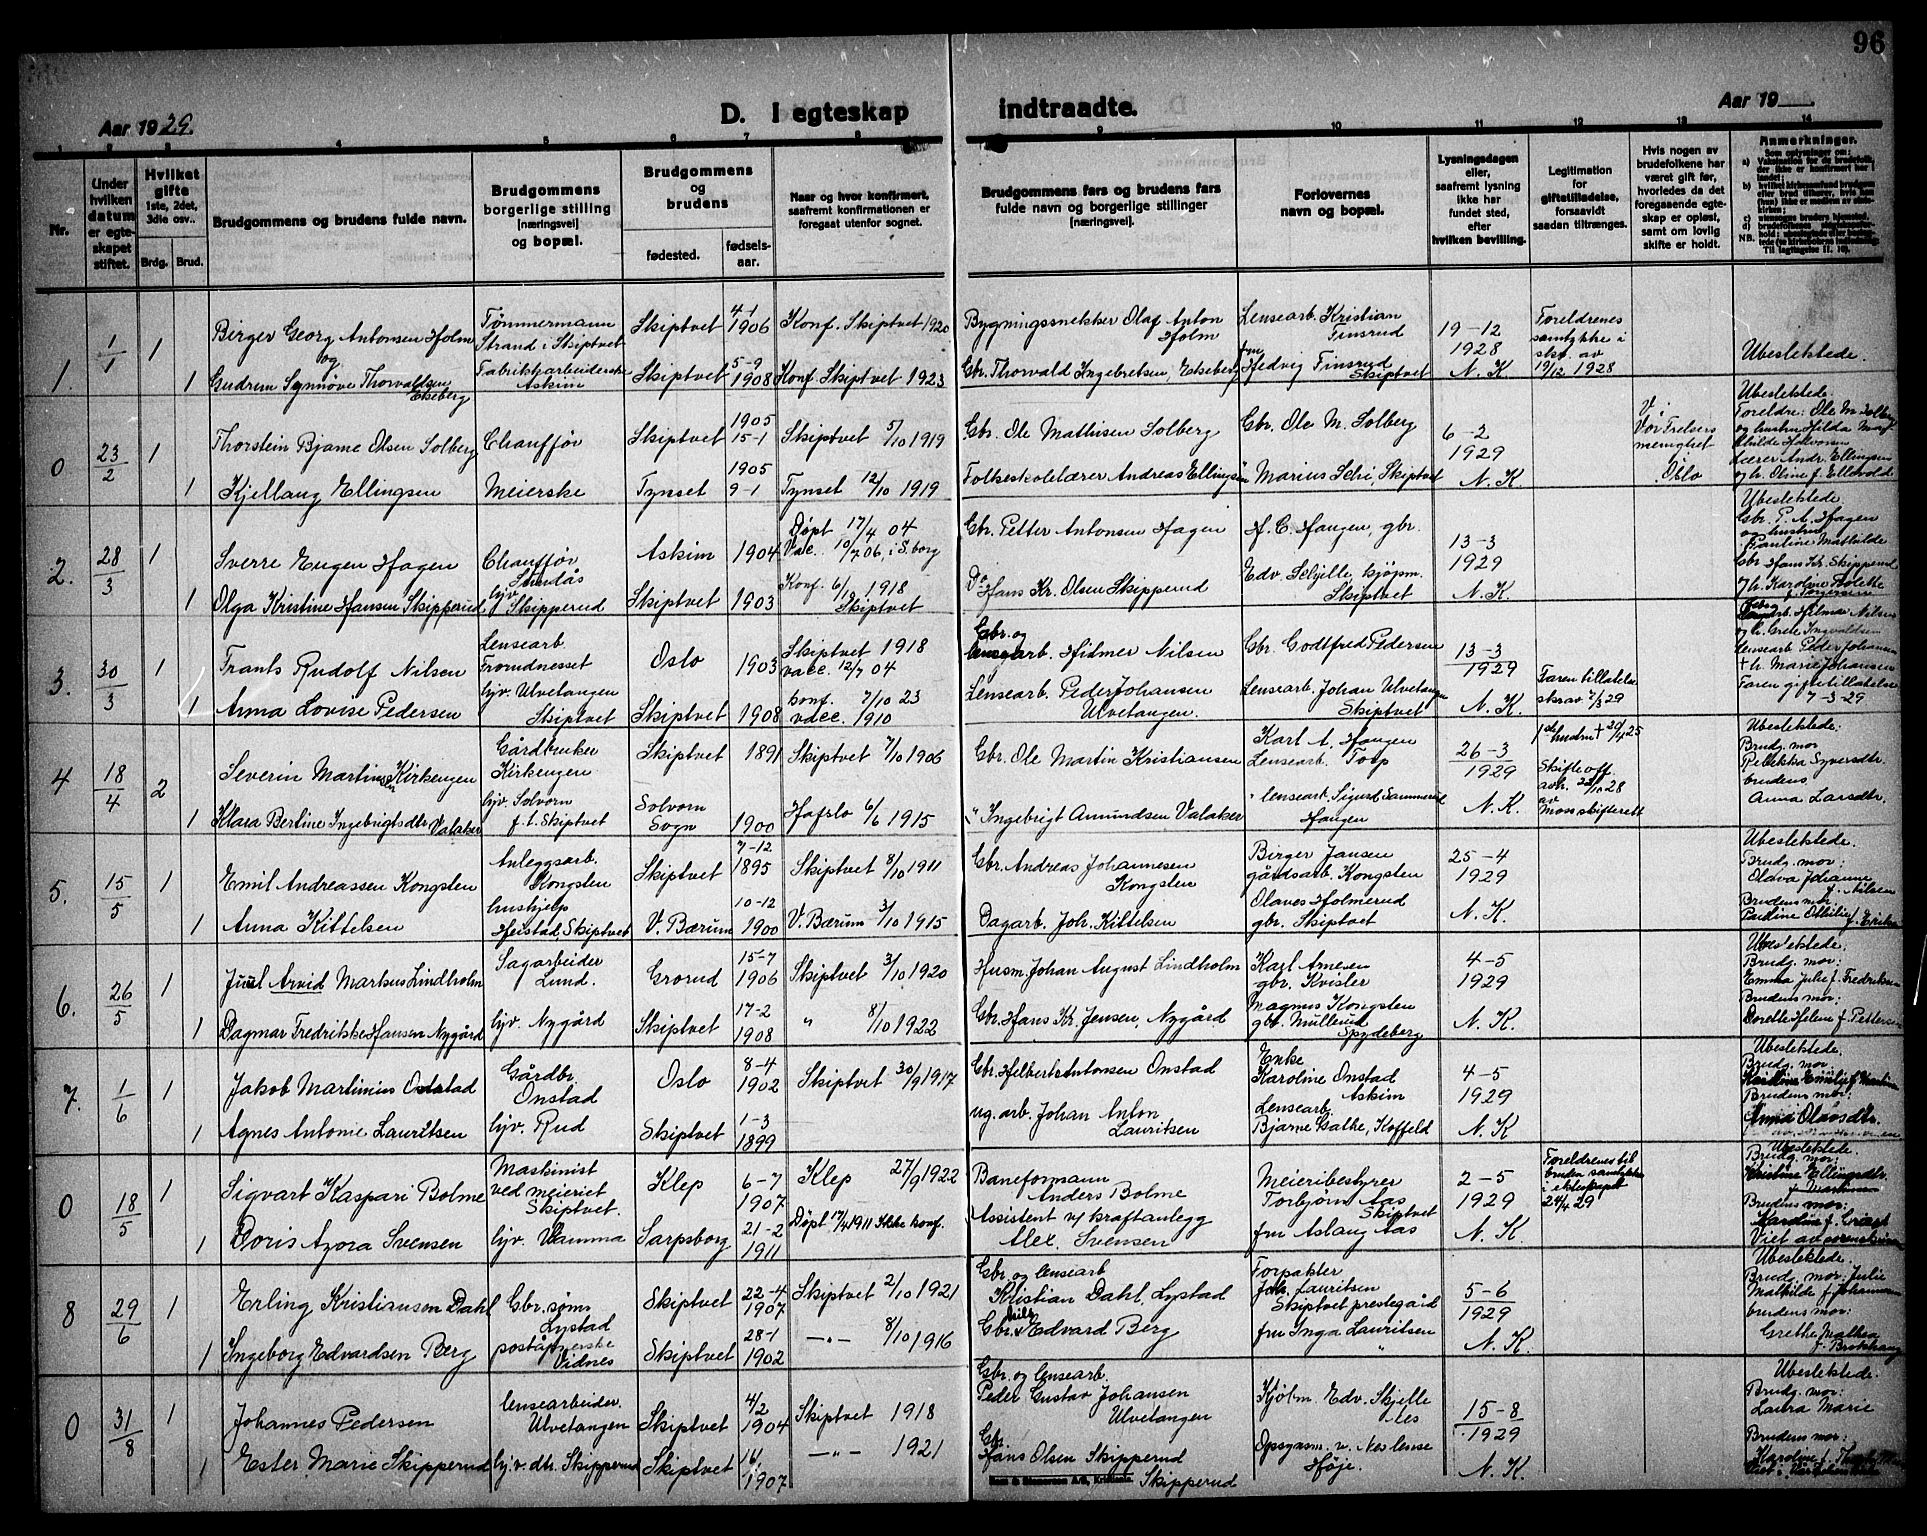 96
Aar 1929.
D. I egteskap indtraadte.
Aar 19__.
1 2 3 4 5 6 7 8 9 10 11 12 13 14
Nr.
Under hvilken datum er egteskapet stiftet.
Hvilket gifte 1ste, 2det, 3die osv..
Brdg. Brud.
Brudgommens og brudens fulde navn.
Brudgommens borgerlige stilling [næringsvei] og bopæl.
Brudgommens og brudens
fødested.
fødselsaar.
Naar og hvor konfirmert, saafremt konfirmationen er foregaat utenfor sognet.
Brudgommens fars og brudens fars fulde navn og borgerlige stillinger [næringsvei].
Forlovernes navn og bopæl.
Lysningsdagen eller, saafremt lysning ikke har fundet sted, efter hvilken bevilling.
Legitimation for giftetilladelse, forsaavidt saadan tiltrænges.
Hvis nogen av brudefolkene har været gift før, hvorledes da det foregaaende egteskap er opløst, samt om lovlig skifte er holdt.
Anmerkninger.
1 1/1 1
Birger Georg Antonsen Holm
Tømmermann Strand i Skiptvet
Skiptvet 4-1 1906
Konf. Skiptvet 1920
Bygningssnekker Olaf Anton Holm
Lensearb. Kristian Finsrud
19-12 1928 N.K
Foreldrenes samtykke i skr. av 19/12 1928
Ubeslektede.
og
1 Gudrun Synnøve Thorvaldsen Ekeberg
Fabrikkarbeiderske Askim
Skiptvet 5-9 1908
Konf Skiptvet 1923
Gbr. Thorvald Ingebretsen, Ekeberg
fru Hedvig Finsrud Skiptvet
0 23/2 1
Thorstein Bjarne Olsen Solberg
Chauffør
Skiptvet 1905 15-1
Skiptvet 5/10 1919
Gbr. Ole Mathisen Solberg
Gbr. Ole M. Solberg
6-2 1929 N.K
V. Vår Frelsers menighet Oslo
Ubeslektede.
Foreldre: Ole M. Solberg
og hustru Hilda Mathilde Halvorsen
Lærer Andr. Ellingsen
og h. Oline f. Ellevold
1 Kjellaug Ellingsen
Meierske
Tynset 1905 9-1
Tynset 12/10 1919
Folkeskolelærer Andreas Ellingsen
" Marius Seli, Skiptvet
2. 28/3 1
Sverre Eugen Hagen
Chauffør Sundås
Askim 1904
Døpt 17/4 04
Vacc. 10/7 06, i S.borg
Gbr. Petter Antonsen Hagen
H. C. Haugen, gbr.
13-3 1929 N.K
Ubeslektede
Gbr. P. A. Hagen
og hustru
Pauline Mathilde
Gbr Hans Kr. Skipperud
og h. Karoline
1 Olga Kristine Hansen Skipperud
hjv. Skipperud
Skiptvet 1903
Konf. 6/10 1918 Skiptvet
Do Hans Kr. Olsen Skipperud
Edv. Schjelle, kjøpm. Skiptvet
3. 30/3 1
Frants Rudolf Nilsen
Lensearb. Fromdnesset
Oslo 1903
Skiptvet 1918
vacc. 12/7 04
Gbr. og lensearb. Hilmer Nilsen
Gbr. Godtfred Pedersen
13-3 1929 N.K.
Faren tillatelse skrav 7/3 29
Hilmer Nilsen
og h. Grete Ingvaldsen
lensearb. Peder Johansen
+ h. Marie Johansen
Faren giftetillatelse
7-3-29
1 Anna Lovise Pedersen
hjv. Ulvetangen Skiptvet
Skiptvet 1908
konf. 7/10 23
vacc. 1910
Lensearb. Peder Johansen Ulvetangen.
Lensearb. Johan Ulvetangen Skiptvet
4 18/4 2
Severin Martinsen Kirkengen
Gårdbruker Kirkengen
Skiptvet 1891
Skiptvet 7/10 1906
Gbr. Ole Martin Kristiansen
Karl A. Haugen Lensearb. Torp
26-3 1929 N.K.
1ste hustru + 20/4 25
Skifte off. avh. 22/10 28 av Moss skifterett
Ubeslektede.
Brudg. mor
Pelekka Syversdtr
brudens
Anna Larsdtr.
1 Klara Bertine Ingebrigtsdtr Valaker
hjv. Solvorn f. t. Skiptvet
Solvorn Sogn 1900
Hafslo 6/6 1915
" Ingebrigt Amundsen Valaker
" lensearb. Sigurd Sammerud Haugen
5. 15/5 1
Emil Andreassen Kongsten
Anleggsarb. Kongsten
Skiptvet 7-12 1895
Skiptvet 8/10 1911
Gbr. Andreas Johannesen Kongsten
Birger Jansen gårdsarb. Kongsten
25-4 1929 N.K.
Ubeslektede.
Brudg. mor:
Olava Johanne
f. Nilsen
Brudens mor:
Pauline Othilie f. Eriksen
1 Anna Kittelsen
hushjelp Heistad, Skiptvet
V. Bærum 10-12 1900
V. Bærum 3/10 1915
Dagarb. Joh. Kittelsen
Olaves Holmerud gbr. Skiptvet
6. 26/5 1
Juul Arvid Markus Lindholm
Sagarbeider Lund.
Grorud 15-7 1906
Skiptvet 3/10 1920
Husm. Johan August Lindholm
Karl Arnesen gbr. Kvisler
4-5 1929 N.K.
Ubeslektede.
Brudg. mor:
Emma Julie f. Fredriksen
Brudens mor:
Dorette Helene f. Pettersen
1 Dagmar Fredrikke Hansen Nygård
hjv. Nygård
Skiptvet 17-2 1908
" 8/10 1922
Gbr. Hans Kr. Jensen, Nygård
Magnus Kongsten gbr. Mullerud Spydeberg
7. 1/6 1
Jakob Martinius Onstad
Gårdbr. Onstad
Oslo 8-4 1902
Skiptvet 30/9 1917
Gbr. Helbert Antonsen Onstad
Enke Karoline Onstad Askim
4-5 1929 N.K
Ubeslektede.
Brudg. mor:
Karoline Emilie f. Martinsen
Brudens mor:
Olavsdtr.
1 Agnes Antonie Lauritsen
hjv. Rud
Skiptvet 1-3 1899
ug. arb. Johan Anton Lauritsen
Lensearb. Bjarne Galbe, Koffeld
0 18/5 1
Sigvart Kaspari Bolme
Maskinist ved meieriet Skiptvet.
Klep 6-7 1907
Klep 27/9 1922
Baneformann Anders Bolme
Meieribestyrer Torbjørn Aas Skiptvet
2-5 1929 N.K.
Foreldrenes til bruden samtykke i ekteskapet 24/4 29
Ubeslektede.
Brudg. mor:
Kristine Ellingsdtr.
Brudens mor:
Karoline f.
1 Doris Azora Svensen
hjv. Vamma
Sarpsborg 21-2 1911
Døpt 17/4 1911 Ikke konf.
Assistent v/ kraftanlegg Alex. Svensen
fru Aslaug Aas
8 29/6 1
Erling Kristiansen Dahl
Gbr. sønn Lystad
Skiptvet 22-4 1907
Skiptvet 2/10 1921
Gbr. og lensearb Kristian Dahl, Lystad
Forpakter Joh. Lauritsen Skiptvet prestegård
5-6 1929 N.K.
Ubeslektede.
Brudg. mor: Julie
Mathilde f. Johannesen
brudens mor:
Grethe Mathea
f. Brekkhaug
1 Ingeborg Edvardsen Berg
poståpnerske Vidnes
Skiptvet 28-1 1902
—"— 8/10 1916
Gbr. Nils Edvard Berg
fru Inga Lauritsen "
0 31/8 1
Johannes Pedersen
lensearbeider Ulvetangen
Skiptvet 4/2 1904
Skiptvet 1918
Gbr. og lensearb. Peder Gustav Johansen Ulvetangen
Kjøbm. Edv. Skjelle Nes
15-8 1929 N.K.
Ubeslektede.
Brudg. mor:
Laura Marie
Brudens mor:
Karoline f.
1 Ester Marie Skipperud
hjv. dtr. Skipperud
Skiptvet 1907
—"— 1921
Gbr. Hans Olsen Skipperud Skipperud
Opsynsm. v. Nes lense Høje.